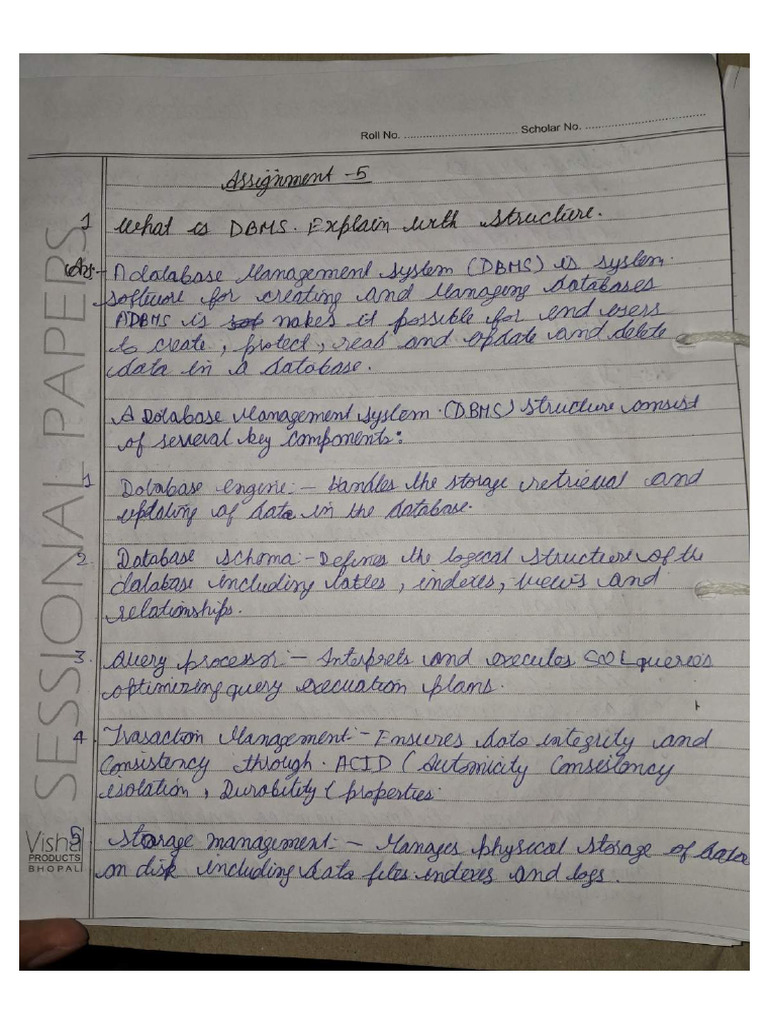 Roll No. .................................. Scholar No. ..................................
Assignment - 5
1 What is DBMS. Explain with structure.
Ans:- A database Management system (DBMS) is system
software for creating and Managing databases
ADBMS is makes it possible for end users
to create, protect, read and update and delete
data in a database.
A Database Management system (DBMS) structure consist
of several key components:
1 Database engine:- Handles the storage retrieval and
updating of data in the database.
2. Database schema:- Defines the logical structure of the
database including tables, indexes, views and
relationships.
3. Query processor:- Interprets and executes SQL queries
optimizing query execuation plans.
4. Trasaction Management - Ensures data integrity and
consistency through. ACID (Automicity Consistency
isolation, Durability ( properties.
5 Storage management:- Manages physical storage of data
on disk including data files indexes and logs.
SESSIONAL PAPERS
Vishal
PRODUCTS
BHOPAL